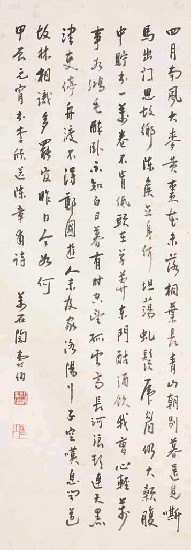 四月南風大麥黃棗花未落桐葉長青山朝別暮還見嘶
馬出門思故鄉陳侯立身何坦蕩虬鬚虎眉仍大顙腹
中貯書一萬卷不肯低頭在草莽東門酤酒飲我曹心輕萬
事如鴻毛醉臥不知白日暮有時空望孤雲高長河浪頭連天黑
津吏停舟渡不得鄭國遊人未及家洛陽行子空嘆息聞道
故林相識多罷官昨日今如何
甲辰元宵書李頎送陳章甫詩
萬石陶壽伯